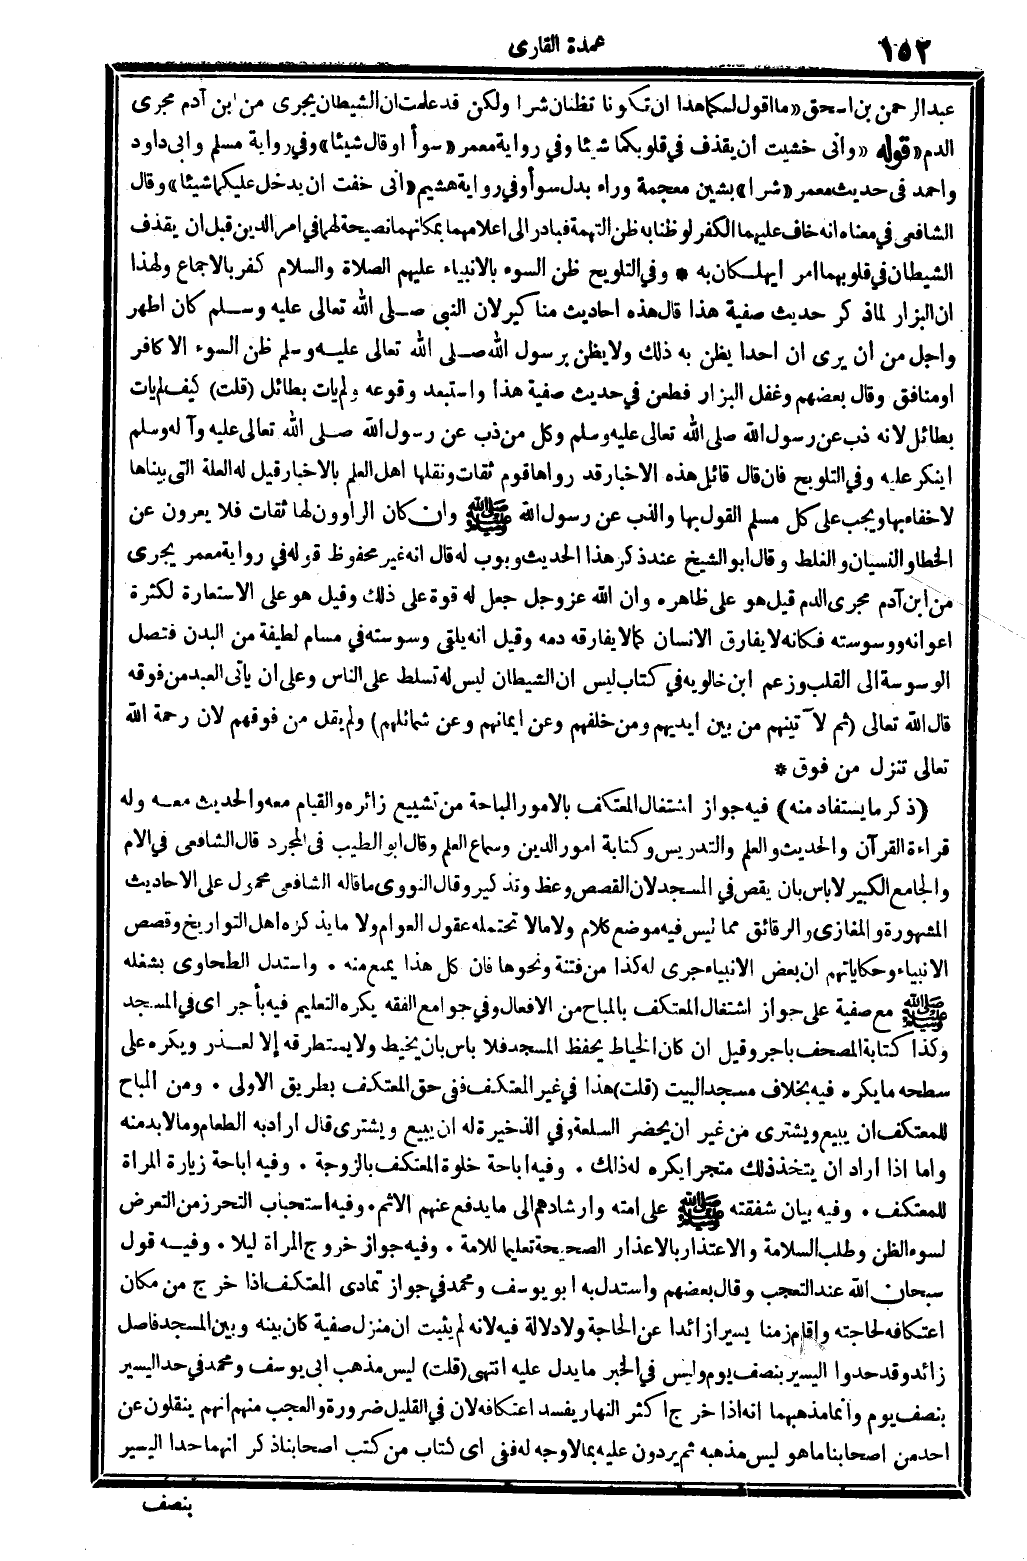 ١٥٢
عمدة القارى
عبد الرحمن بن اسحق «ما اقول لكما هذا ان تكونا تظنان شرا ولكن قد علمت ان الشيطان يجرى من ابن آدم مجرى
الدم» قوله «وانى خشيت ان يقذف فى قلوبكما شيئا وفى رواية معمر «سوأ او قال شيئا» وفى رواية مسلم وابى داود
واحمد فى حديث معمر «شرا» بشين معجمة وراء بدل سوأ وفى رواية هشيم «انى خفت ان يدخل عليكما شيئا» وقال
الشافعى فى معناه انه خاف عليهما الكفر لو ظنا به ظن التهمة فبادر الى اعلامهما بمكانهما نصيحة لهما فى امر الدين قبل ان يقذف
الشيطان فى قلوبهما امر ايهلكان به * وفى التلويح ظن السوء بالانبياء عليهم الصلاة والسلام كفر بالاجماع ولهذا
ان البزار لماذ كر حديث صفية هذا قال هذه احاديث منا كير لان النبى صلى الله تعالى عليه وسلم كان اطهر
واجل من ان يرى ان احدا يظن به ذلك ولا يظن برسول الله صلى الله تعالى عليه وسلم ظن السوء الا كافر
او منافق وقال بعضهم وغفل البزار فطعن فى حديث صفية هذا واستبعد وقوعه ولم يات بطائل (قلت) كيف لم يات
بطائل لانه ذب عن رسول الله صلى الله تعالى عليه وسلم وكل من ذب عن رسول الله صلى الله تعالى عليه وآله وسلم
اينكر عليه وفى التلويح فان قال قائل هذه الاخبار قد رواها قوم ثقات ونقلها اهل العلم بالاخبار قيل له العلة التى بيناها
لا خفاء بها ويجب على كل مسلم القول بها والذب عن رسول الله ﷺ وان كان الراوون لها ثقات فلا يعرون عن
الخطا والنسيان والغلط وقال ابو الشيخ عند ذكر هذا الحديث وبوب له قال انه غير محفوظ قوله فى رواية معمر يجرى
من ابن آدم مجرى الدم قيل هو على ظاهره وان الله عز وجل جعل له قوة على ذلك وقيل هو على الاستعارة لكثرة
اعوانه ووسوسته فكانه لا يفارق الانسان كما لا يفارقه دمه وقيل انه يلقى وسوسته فى مسام لطيفة من البدن فتصل
الوسوسة الى القلب وزعم ابن خالويه فى كتاب ليس ان الشيطان ليس له تسلط على الناس وعلى ان ياتى العبد من فوقه
قال الله تعالى (ثم لآتينهم من بين ايديهم ومن خلفهم وعن ايمانهم وعن شمائلهم) ولم يقل من فوقهم لان رحمة الله
تعالى تنزل من فوق *
(ذكر ما يستفاد منه) فيه جواز اشتغال المعتكف بالامور المباحة من تشييع زائره والقيام معه والحديث معه وله
قراءة القرآن والحديث والعلم والتدريس وكتابة امور الدين وسماع العلم وقال ابو الطيب فى المجرد قال الشافعى فى الام
والجامع الكبير لا باس بان يقص فى المسجد لان القصص وعظ وتذكير وقال النووى ما قاله الشافعى محمول على الاحاديث
المشهورة والمغازى والرقائق مما ليس فيه موضع كلام ولا ما لا تحتمله عقول العوام ولا ما يذكره اهل التواريخ وقصص
الانبياء وحكاياتهم ان بعض الانبياء جرى له كذا من فتنة ونحوها فان كل هذا يمنع منه . واستدل الطحاوى بشغله
ﷺ مع صفية على جواز اشتغال المعتكف بالمباح من الافعال وفى جوامع الفقه يكره التعليم فيه بأجر اى فى المسجد
وكذا كتابة المصحف باجر وقيل ان كان الخياط يحفظ المسجد فلا باس بان يخيط ولا يستطرقه إلا لعذر ويكره على
سطحه ما يكره فيه بخلاف مسجد البيت (قلت) هذا فى غير المعتكف ففى حق المعتكف بطريق الاولى . ومن المباح
للمعتكف ان يبيع ويشترى من غير ان يحضر السلعة وفى الذخيرة له ان يبيع ويشترى قال اراد به الطعام وما لا بد منه
واما اذا اراد ان يتخذ ذلك متجرا يكره له ذالك . وفيه اباحة خلوة المعتكف بالزوجة . وفيه اباحة زيارة المراة
للمعتكف . وفيه بيان شفقته ﷺ على امته وارشادهم الى ما يدفع عنهم الاثم . وفيه استحباب التحرز من التعرض
لسوء الظن وطلب السلامة والاعتذار بالاعذار الصحيحة تعليما للامة . وفيه جواز خروج المراة ليلا . وفيه قول
سبحان الله عند التعجب وقال بعضهم واستدل به ابو يوسف ومحمد فى جواز تمادى المعتكف اذا خرج من مكان
اعتكافه لحاجته واقام زمنا يسيرا زائدا عن الحاجة ولا دلالة فيه لانه لم يثبت ان منزل صفية كان بينه وبين المسجد فاصل
زائد وقد حدوا اليسير بنصف يوم وليس فى الخبر ما يدل عليه انتهى (قلت) ليس مذهب ابى يوسف ومحمد فى حد اليسير
بنصف يوم وانما مذهبهما انه اذا خرج اكثر النهار يفسد اعتكافه لان فى القليل ضرورة والعجب منهم انهم ينقلون عن
احد من اصحابنا ما هو ليس مذهبه ثم يردون عليه بما لا وجه له ففى اى كتاب من كتب اصحابنا ذكر انهما حدا اليسير
بنصف